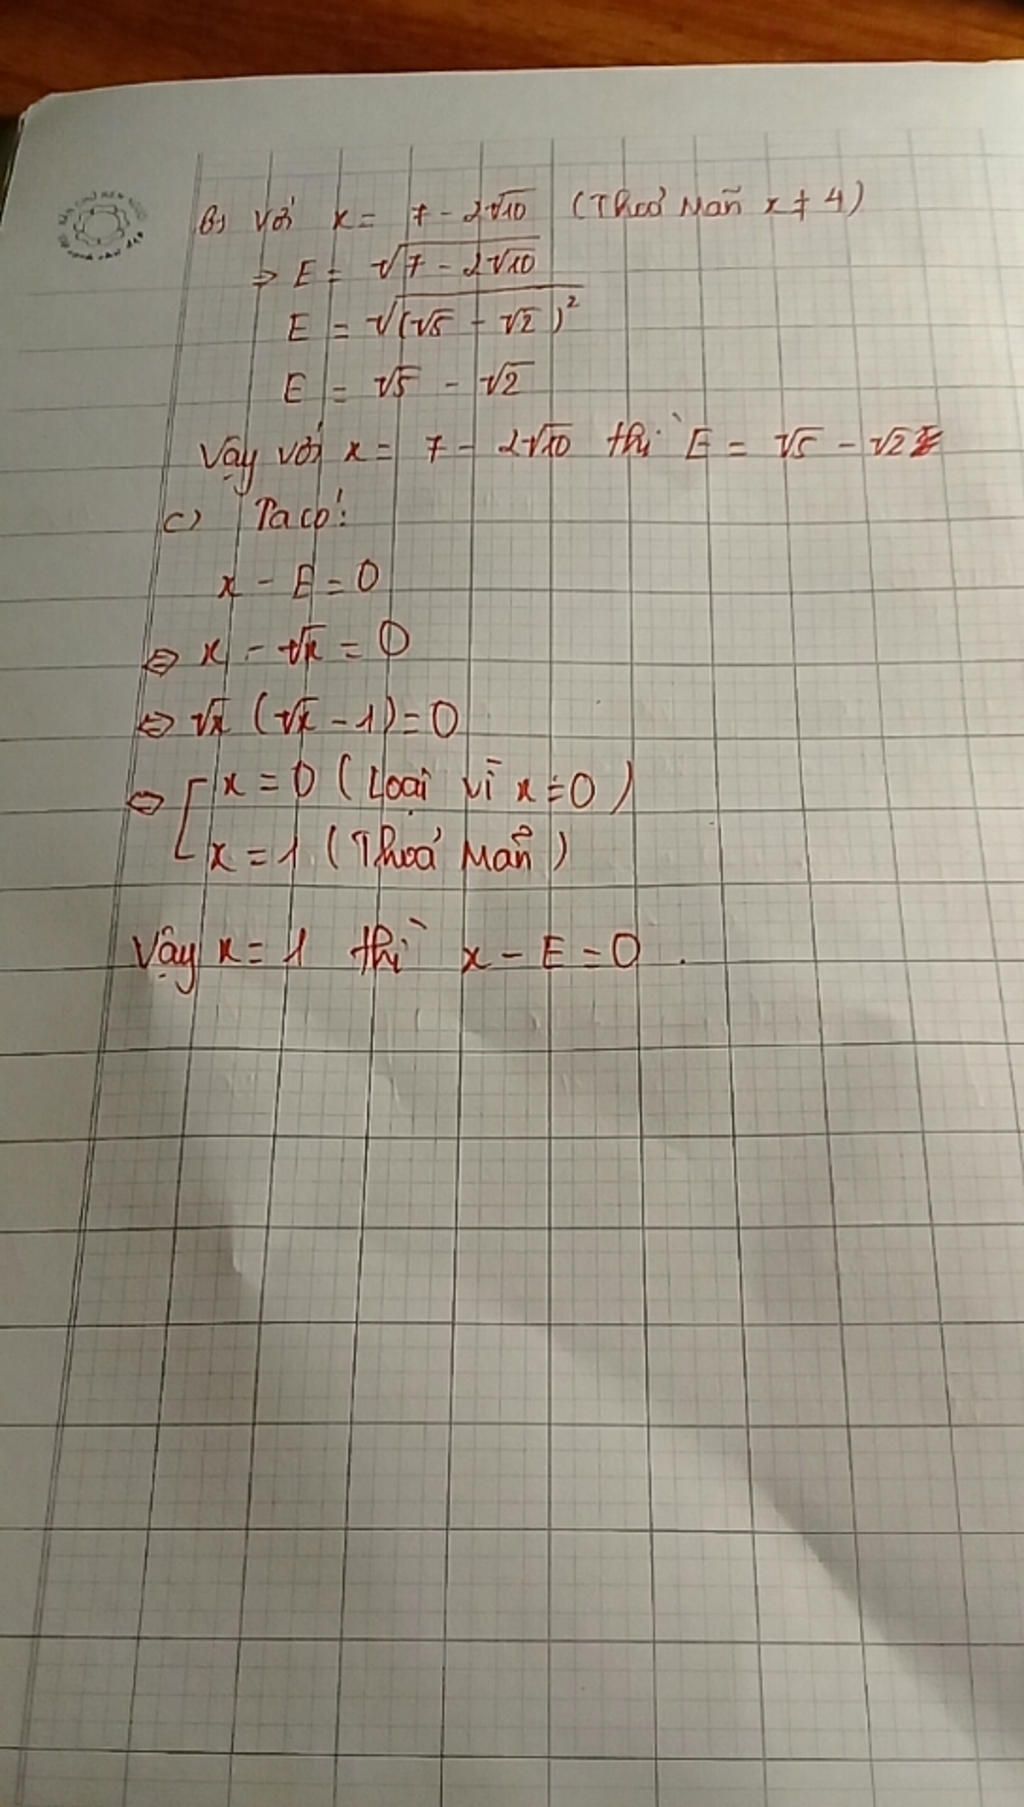 B) Với x = 7 - 2√10 (Thoả Mãn x ≠ 4)
⇒ E = √(7 - 2√10)
E = √((√5 - √2)²)
E = √5 - √2
Vậy với x = 7 - 2√10 thì E = √5 - √2
c) Ta có:
x - E = 0
⇔ x - √x = 0
⇔ √x (√x - 1) = 0
⇔ [ x = 0 (Loại vì x ≠ 0)
x = 1 (Thoả Mãn)
Vậy x = 1 thì x - E = 0.